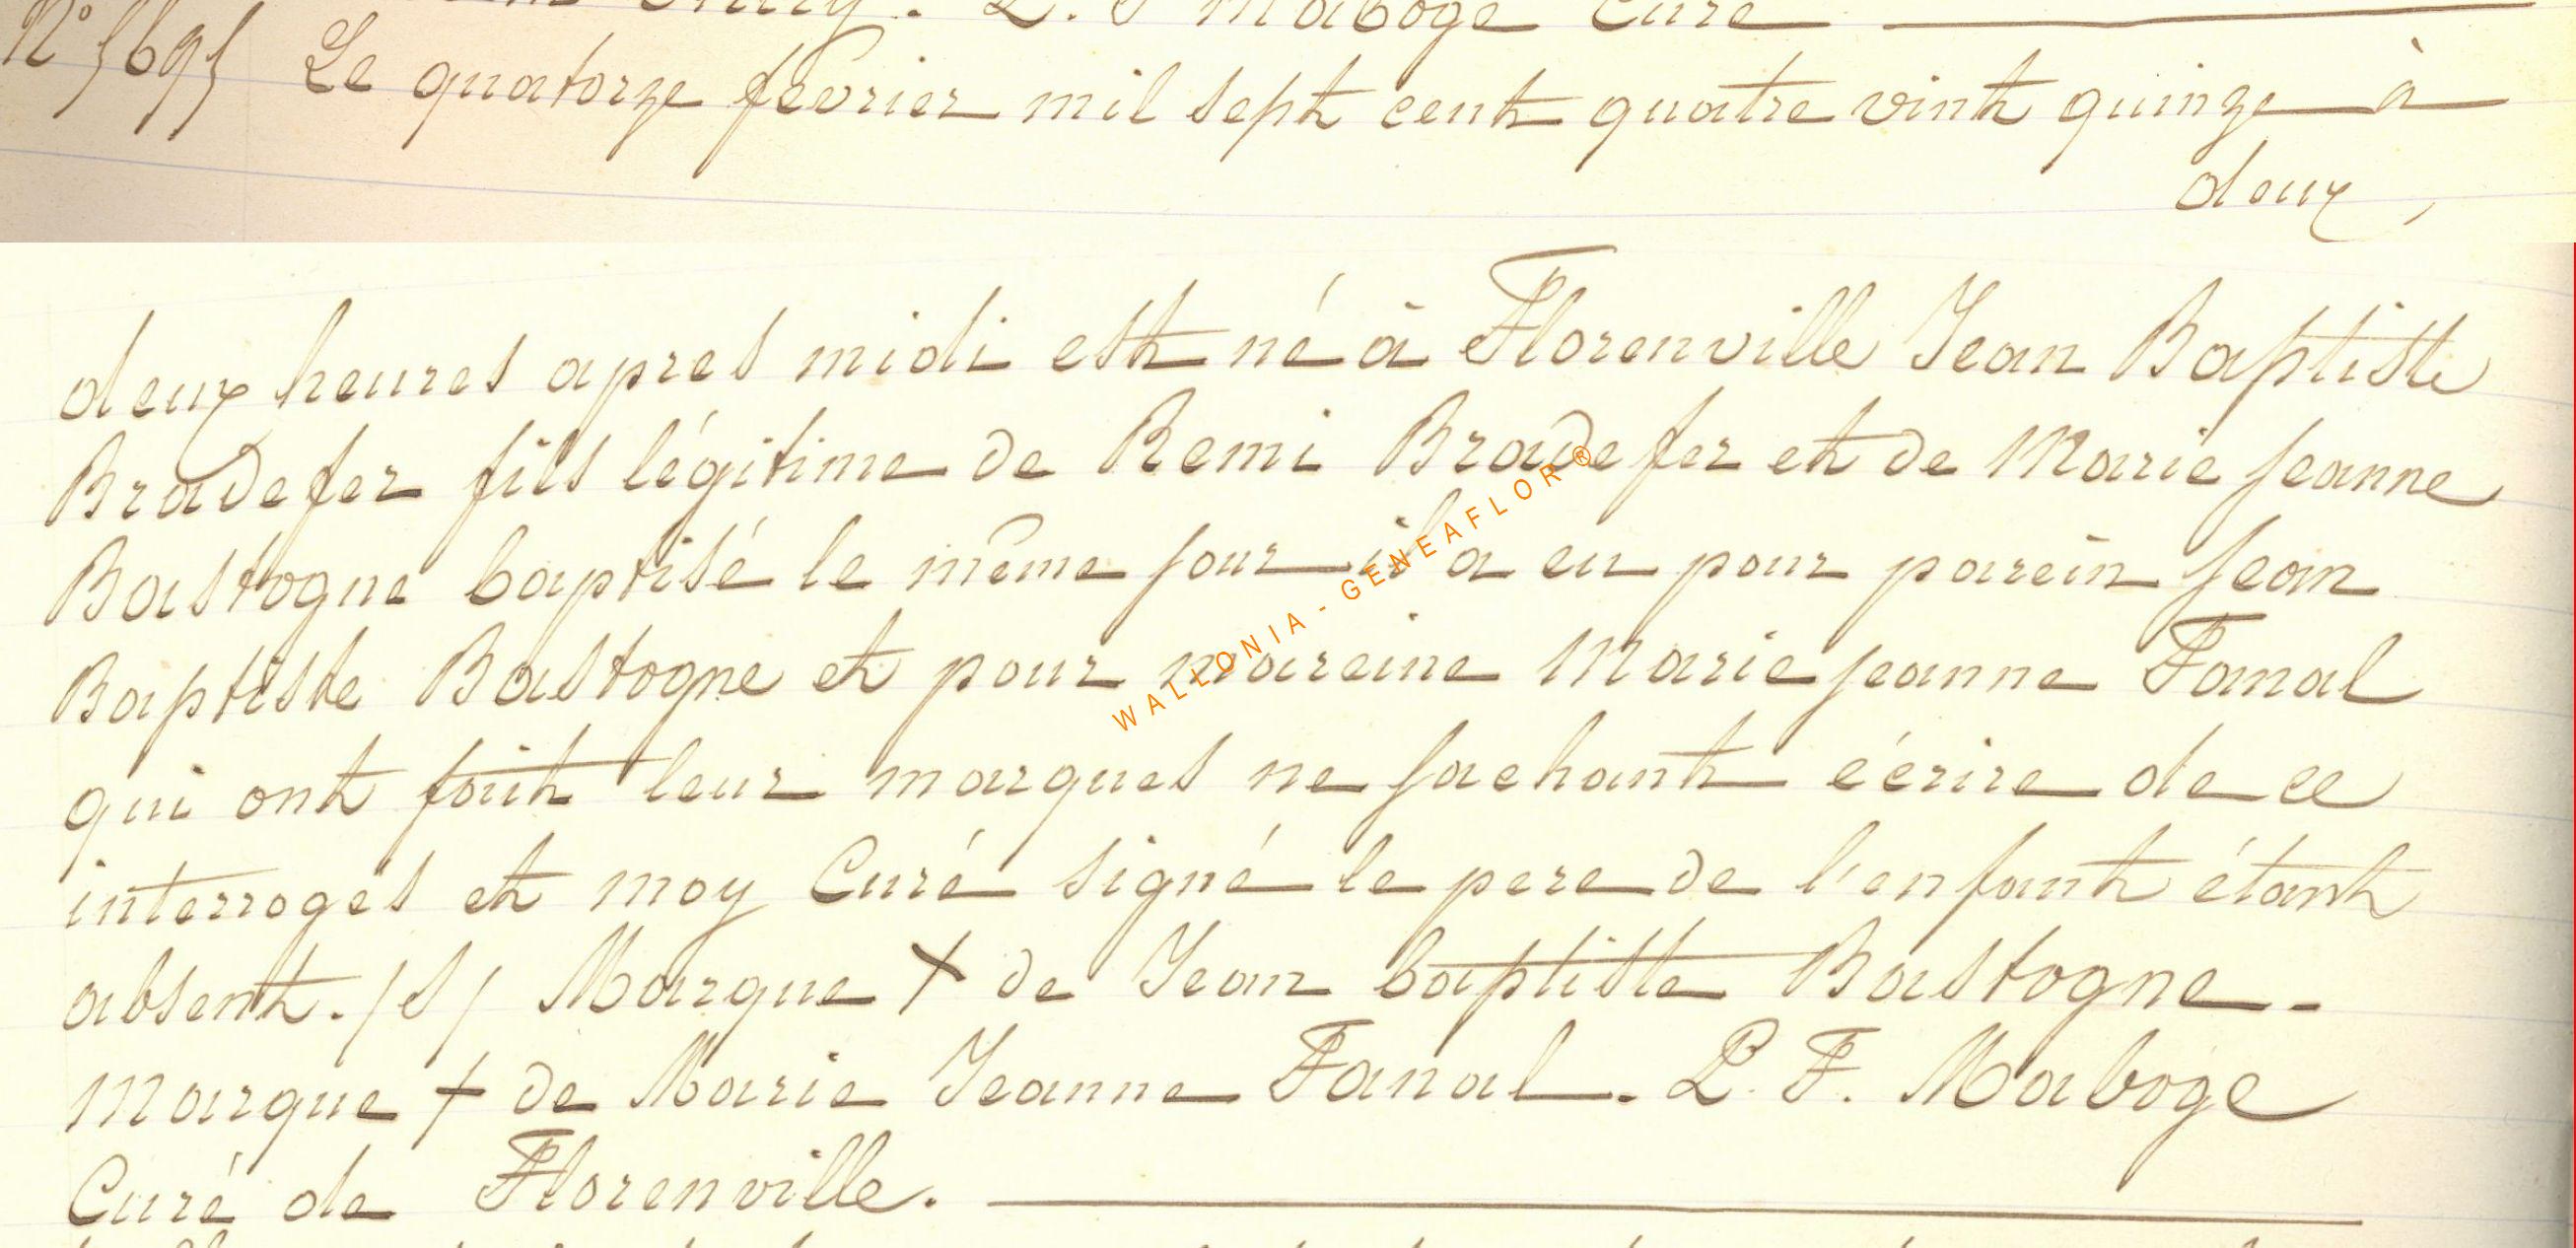 L. F Maboge Curé
N° 5695 Le quatorze fevrier mil sept cent quatre vint quinze à
deux,
deux heures apres midi est né à Florenville Jean Baptiste
Bradefer fils légitime de Remi Bradefer et de Marie Jeanne
Bastogne baptisé le même jour il a eu pour parein Jean
Baptiste Bastogne et pour mareine Marie Jeanne Fanal
qui ont fait leur marques ne sachant écrire de ce
interrogés et moy Curé signé le pere de l'enfant étant
absent. /s/ Marque + de Jean baptiste Bastogne.
Marque + de Marie Jeanne Fanal. L. F. Maboge
Curé de Florenville.
WALLONIA - GENEAFLOR ®